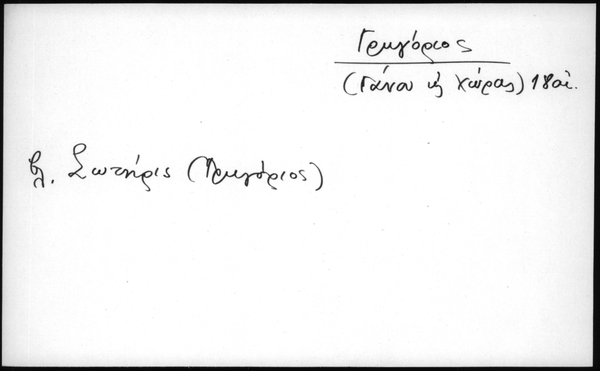 Γρηγόριος
(Γάνου κ Χώρας) 18αι.
βλ. Σωτήρις (Γρηγόριος)